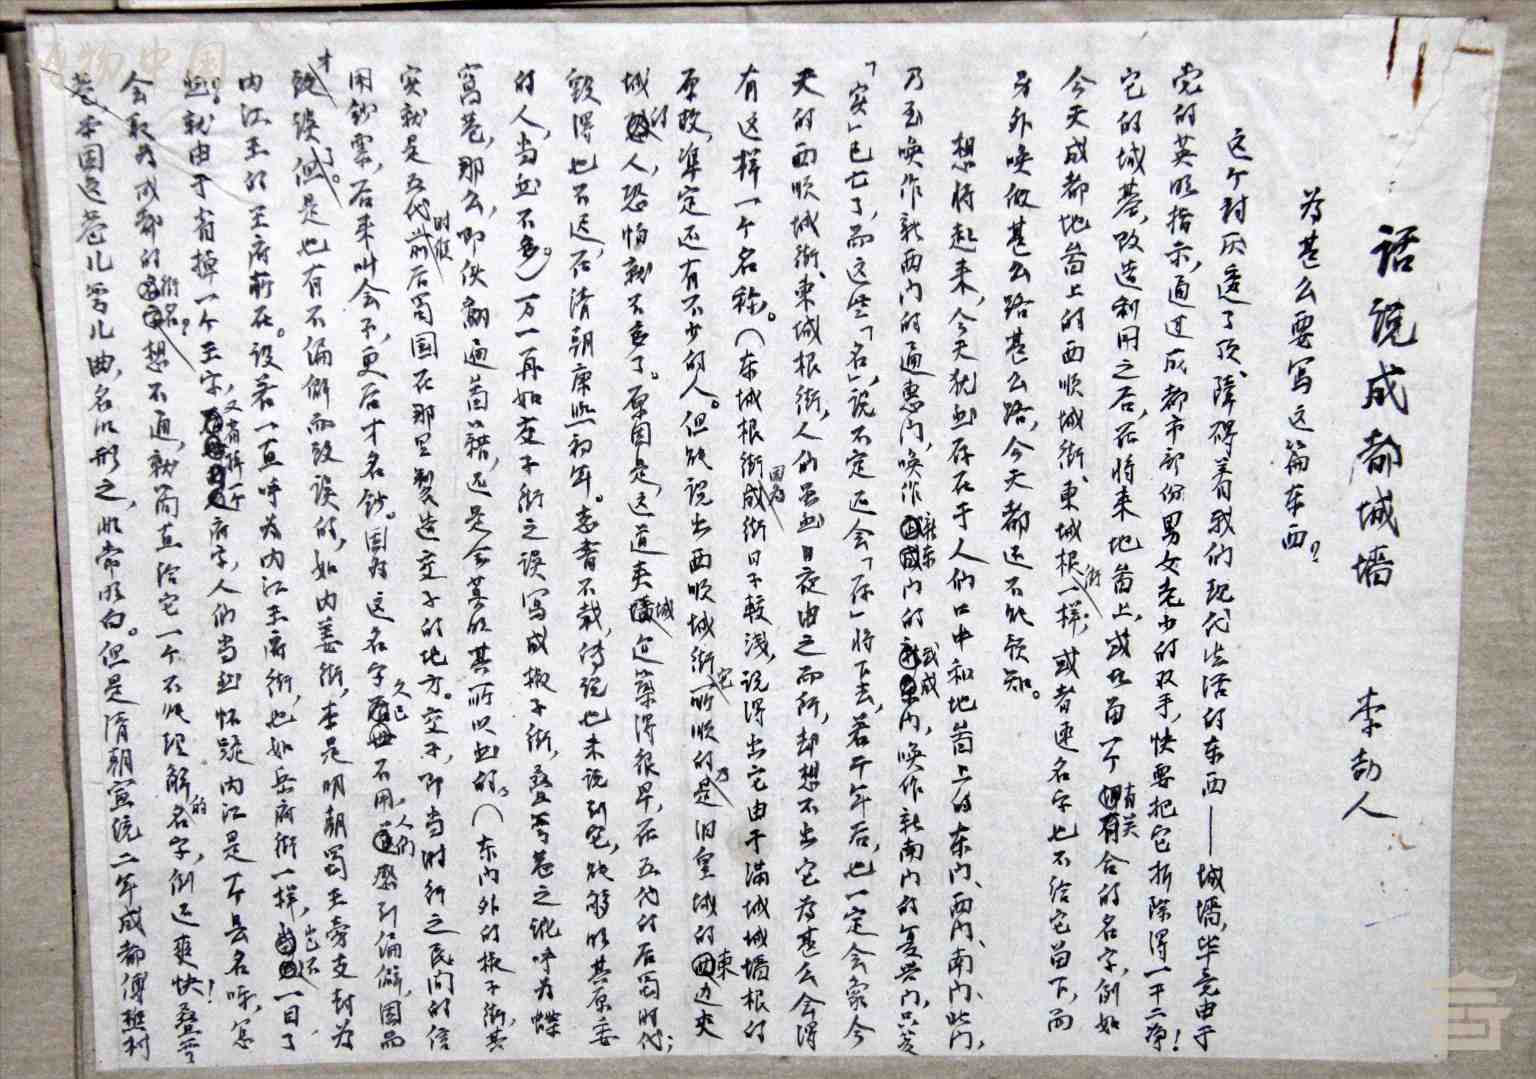 话说成都城墙 李劼人
为甚么要写这篇东西？
这个封厌透了顶、障碍着我们现代生活的东西——城墙，毕竟由于
党的英明指示，通过成都市部份男女老少的双手，快要把它拆除得一干二净！
它的城基，改造利用之后，在将来地面上，或者留一个有关合的名字，例如
今天成都地面上的西顺城街、东城根街一样；或者连名字也不给它留下，而
另外唤做甚么路甚么路，今天都还不能预知。
想将起来，今天犹然存在于人们口中和地面上的东门、西门、南门、北门，
乃至唤作新西门的通惠门，唤作新东门的武成门，唤作新南门的复兴门，只
「实」已亡了，而这些「名」，说不定还会「存」将下去，若干年后，也一定会象今
天的西顺城街、东城根街，人们虽然日夜由之而行，却想不出它为甚么会得
有这样一个名称。（东城根街因为成街日子较浅，说得出它由于满城城墙根的
原故，准定还有不少的人。但能说出西顺城街，它所顺的乃是旧皇城的东边夹
城的人，恐怕就不多了。原因是，这道夹城迨筑得很早，在五代的后蜀时代；
毁得也不迟，在清朝康熙初年。志书不载，传说也未说到它，能够明其原委
的人，当然不多。）万一再如交子街之误写成椒子街，叠弯巷之讹呼为蝶
窝巷，那么，即使翻遍旧籍，还是会莫明其所以然的。（东门外的椒子街，其
实就是五代时候前后蜀国在那里制造交子的地方。交子，即当时行之民间的信
用钞票，后来叫会子，更后才名钞。因为这名字久已不用，人们感到偏僻，因而
才致误了。但是也有不偏僻而致误的，如内姜街，本是明朝蜀王旁支封为
内江王的王府所在。设若一直呼为内江王府街，也如岳府街一样，岂不一目了
然！就由于省掉一个王字，又省掉一个府字，人们当然怀疑内江是个县名呀，怎
会取为成都的街名？想不通，就简直给它一个不能理解的名字，倒还爽快！叠弯
巷本因这巷儿弯儿曲，名以形之，非常明白。但是清朝宣统二年成都傅樵村